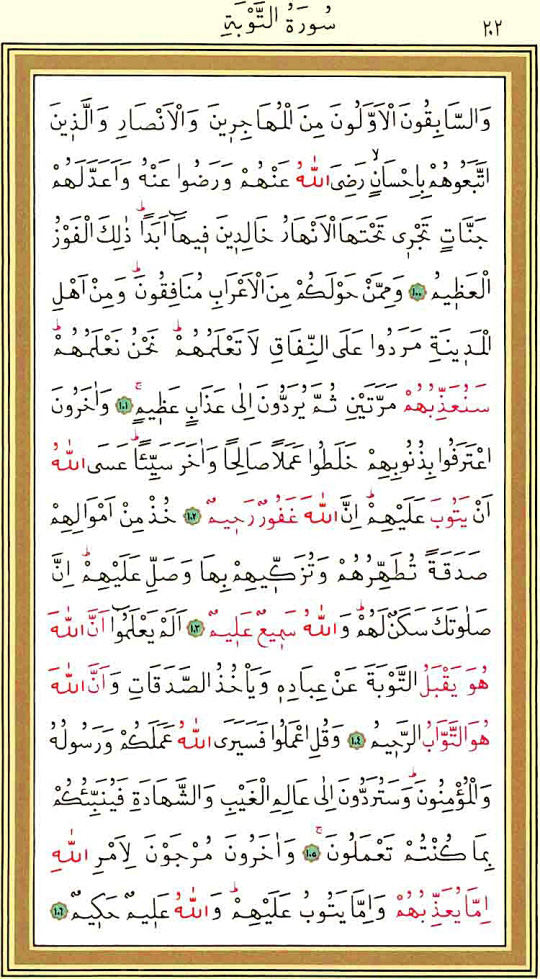 ٢٠٢ سُورَةُ التَّوْبَةِ
وَالسَّابِقُونَ الْاَوَّلُونَ مِنَ الْمُهَاجِرِينَ وَالْاَنْصَارِ وَالَّذِينَ
اتَّبَعُوهُمْ بِاِحْسَانٍۙ رَضِيَ اللّٰهُ عَنْهُمْ وَرَضُوا عَنْهُ وَاَعَدَّ لَهُمْ
جَنَّاتٍ تَجْرِي تَحْتَهَا الْاَنْهَارُ خَالِدِينَ فِيهَٓا اَبَدًاۜ ذٰلِكَ الْفَوْزُ
الْعَظِيمُ ﴿١٠٠﴾ وَمِمَّنْ حَوْلَكُمْ مِنَ الْاَعْرَابِ مُنَافِقُونَۜ وَمِنْ اَهْلِ
الْمَدِينَةِ مَرَدُوا عَلَى النِّفَاقِ لَا تَعْلَمُهُمْۜ نَحْنُ نَعْلَمُهُمْۜ
سَنُعَذِّبُهُمْ مَرَّتَيْنِ ثُمَّ يُرَدُّونَ اِلٰى عَذَابٍ عَظِيمٍۚ ﴿١٠١﴾ وَاٰخَرُونَ
اعْتَرَفُوا بِذُنُوبِهِمْ خَلَطُوا عَمَلًا صَالِحًا وَاٰخَرَ سَيِّئًاۜ عَسَى اللّٰهُ
اَنْ يَتُوبَ عَلَيْهِمْۜ اِنَّ اللّٰهَ غَفُورٌ رَحِيمٌ ﴿١٠٢﴾ خُذْ مِنْ اَمْوَالِهِمْ
صَدَقَةً تُطَهِّرُهُمْ وَتُزَكِّيهِمْ بِهَا وَصَلِّ عَلَيْهِمْۜ اِنَّ
صَلٰوتَكَ سَكَنٌ لَهُمْۜ وَاللّٰهُ سَمِيعٌ عَلِيمٌ ﴿١٠٣﴾ اَلَمْ يَعْلَمُٓوا اَنَّ اللّٰهَ
هُوَ يَقْبَلُ التَّوْبَةَ عَنْ عِبَادِهِ وَيَأْخُذُ الصَّدَقَاتِ وَاَنَّ اللّٰهَ
هُوَ التَّوَّابُ الرَّحِيمُ ﴿١٠٤﴾ وَقُلِ اعْمَلُوا فَسَيَرَى اللّٰهُ عَمَلَكُمْ وَرَسُولُهُ
وَالْمُؤْمِنُونَۜ وَسَتُرَدُّونَ اِلٰى عَالِمِ الْغَيْبِ وَالشَّهَادَةِ فَيُنَبِّئُكُمْ
بِمَا كُنْتُمْ تَعْمَلُونَۚ ﴿١٠٥﴾ وَاٰخَرُونَ مُرْجَوْنَ لِاَمْرِ اللّٰهِ
اِمَّا يُعَذِّبُهُمْ وَاِمَّا يَتُوبُ عَلَيْهِمْۜ وَاللّٰهُ عَلِيمٌ حَكِيمٌ ﴿١٠٦﴾